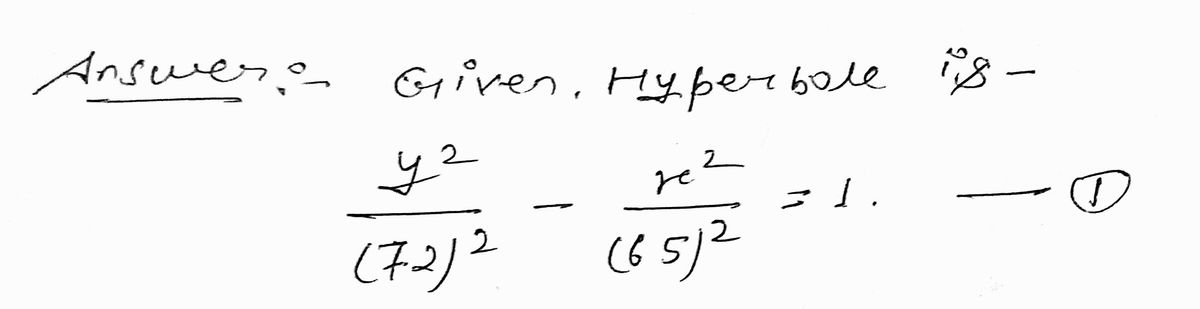 Answer:- Given, Hyperbole is -
y²/(72)² - x²/(65)² = 1. — ①